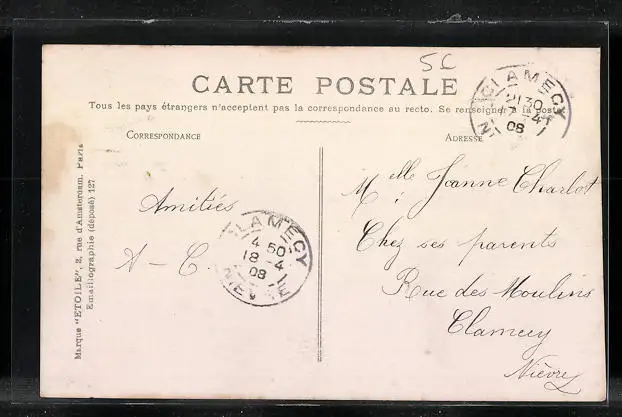 5c
CARTE POSTALE
Tous les pays étrangers n'acceptent pas la correspondance au recto. Se renseigner à la poste
CORRESPONDANCE
ADRESSE
CLAMECY
21 30
-4
08
Amitiés
A - C.
CLAMECY
4 50
18 -4
08
NIEVRE
Melle Jeanne Charlot
Chez ses parents
Rue des Moulins
Clamecy
Nièvre
Marque "ETOILE", 2, rue d'Amsterdam. Paris
Emaillographie (déposé) 127